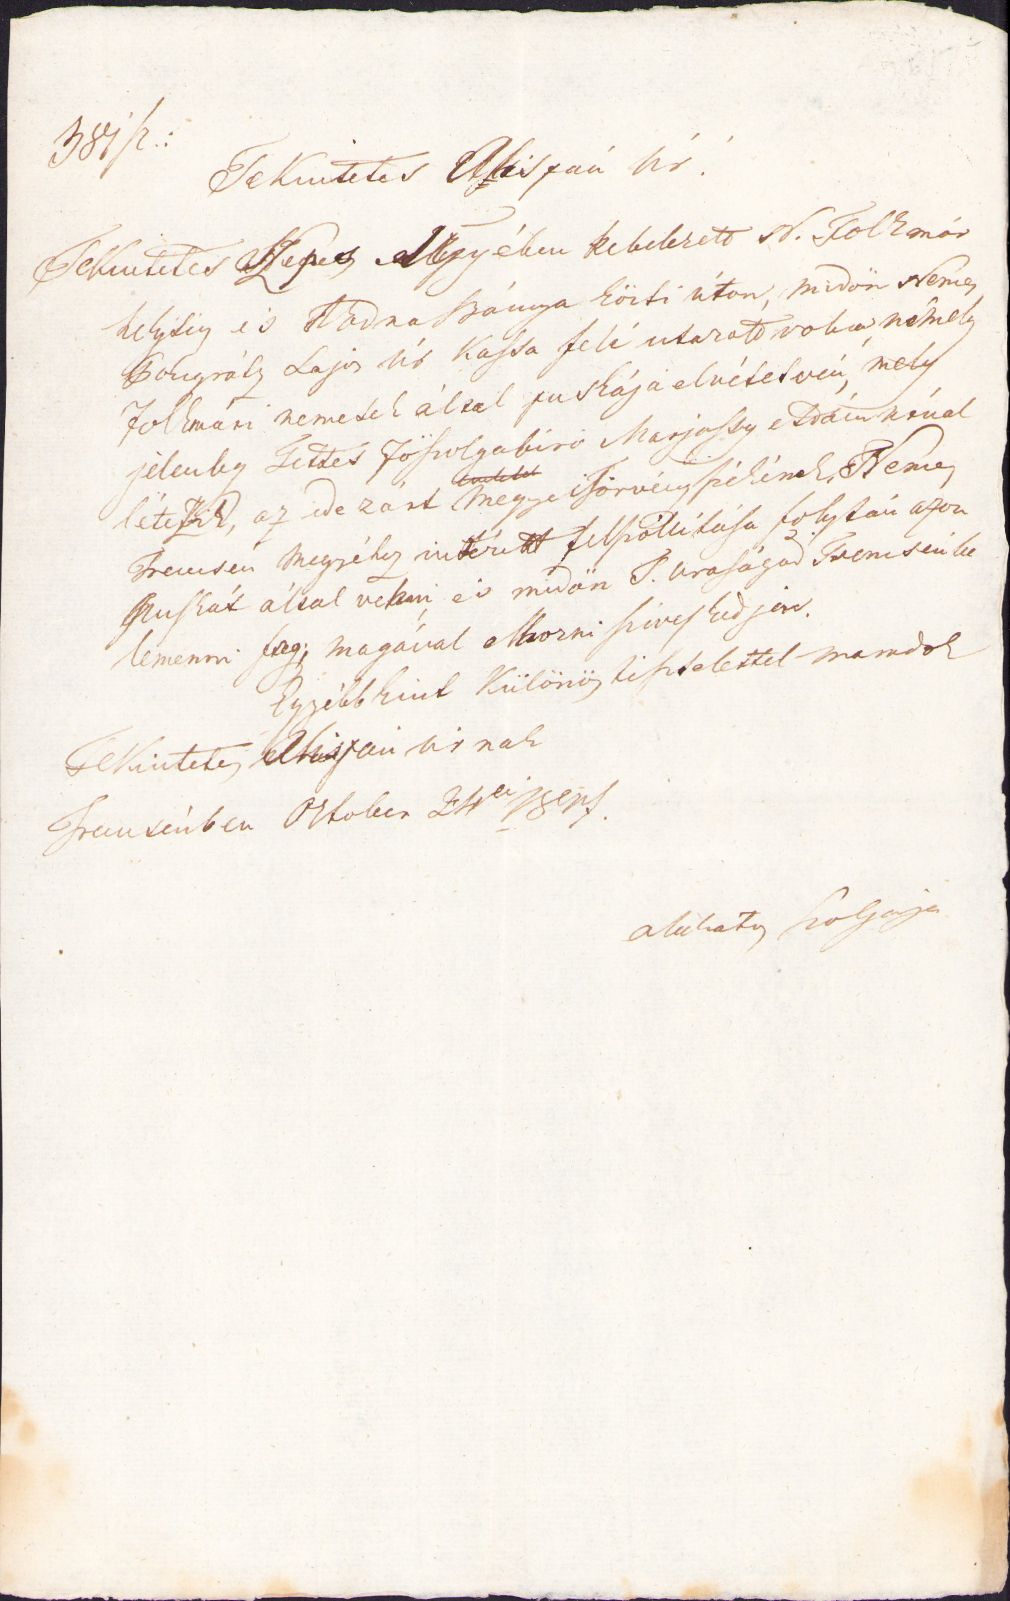 Tekintetes Alispán Úr!
Tekintetes Szepes Megyében kebelezett N. Folkmár
helység és Radna Bánya közti úton, midőn Nemes
Pongrátz Lajos Úr Kassa felé utazott volna némely
folkmári nemesek által puskája elvétetvén, mely
jelenleg Tettes főszolgabiró Marjassy Ádám Úrnál
létezik, az ide zárt Megyei törvény székének, Nemes
Trencsén Megyéhez intézett felszóllitása folytán azon
puskát által venni és midőn T. Uraságod Trencsénbe
lemenni fog, magával elhozni szíveskedjen.
Egyébbként különös tisztelettel maradok
Tekintetes Alispán Úrnak
Trencsénben October
alázatos szolgája